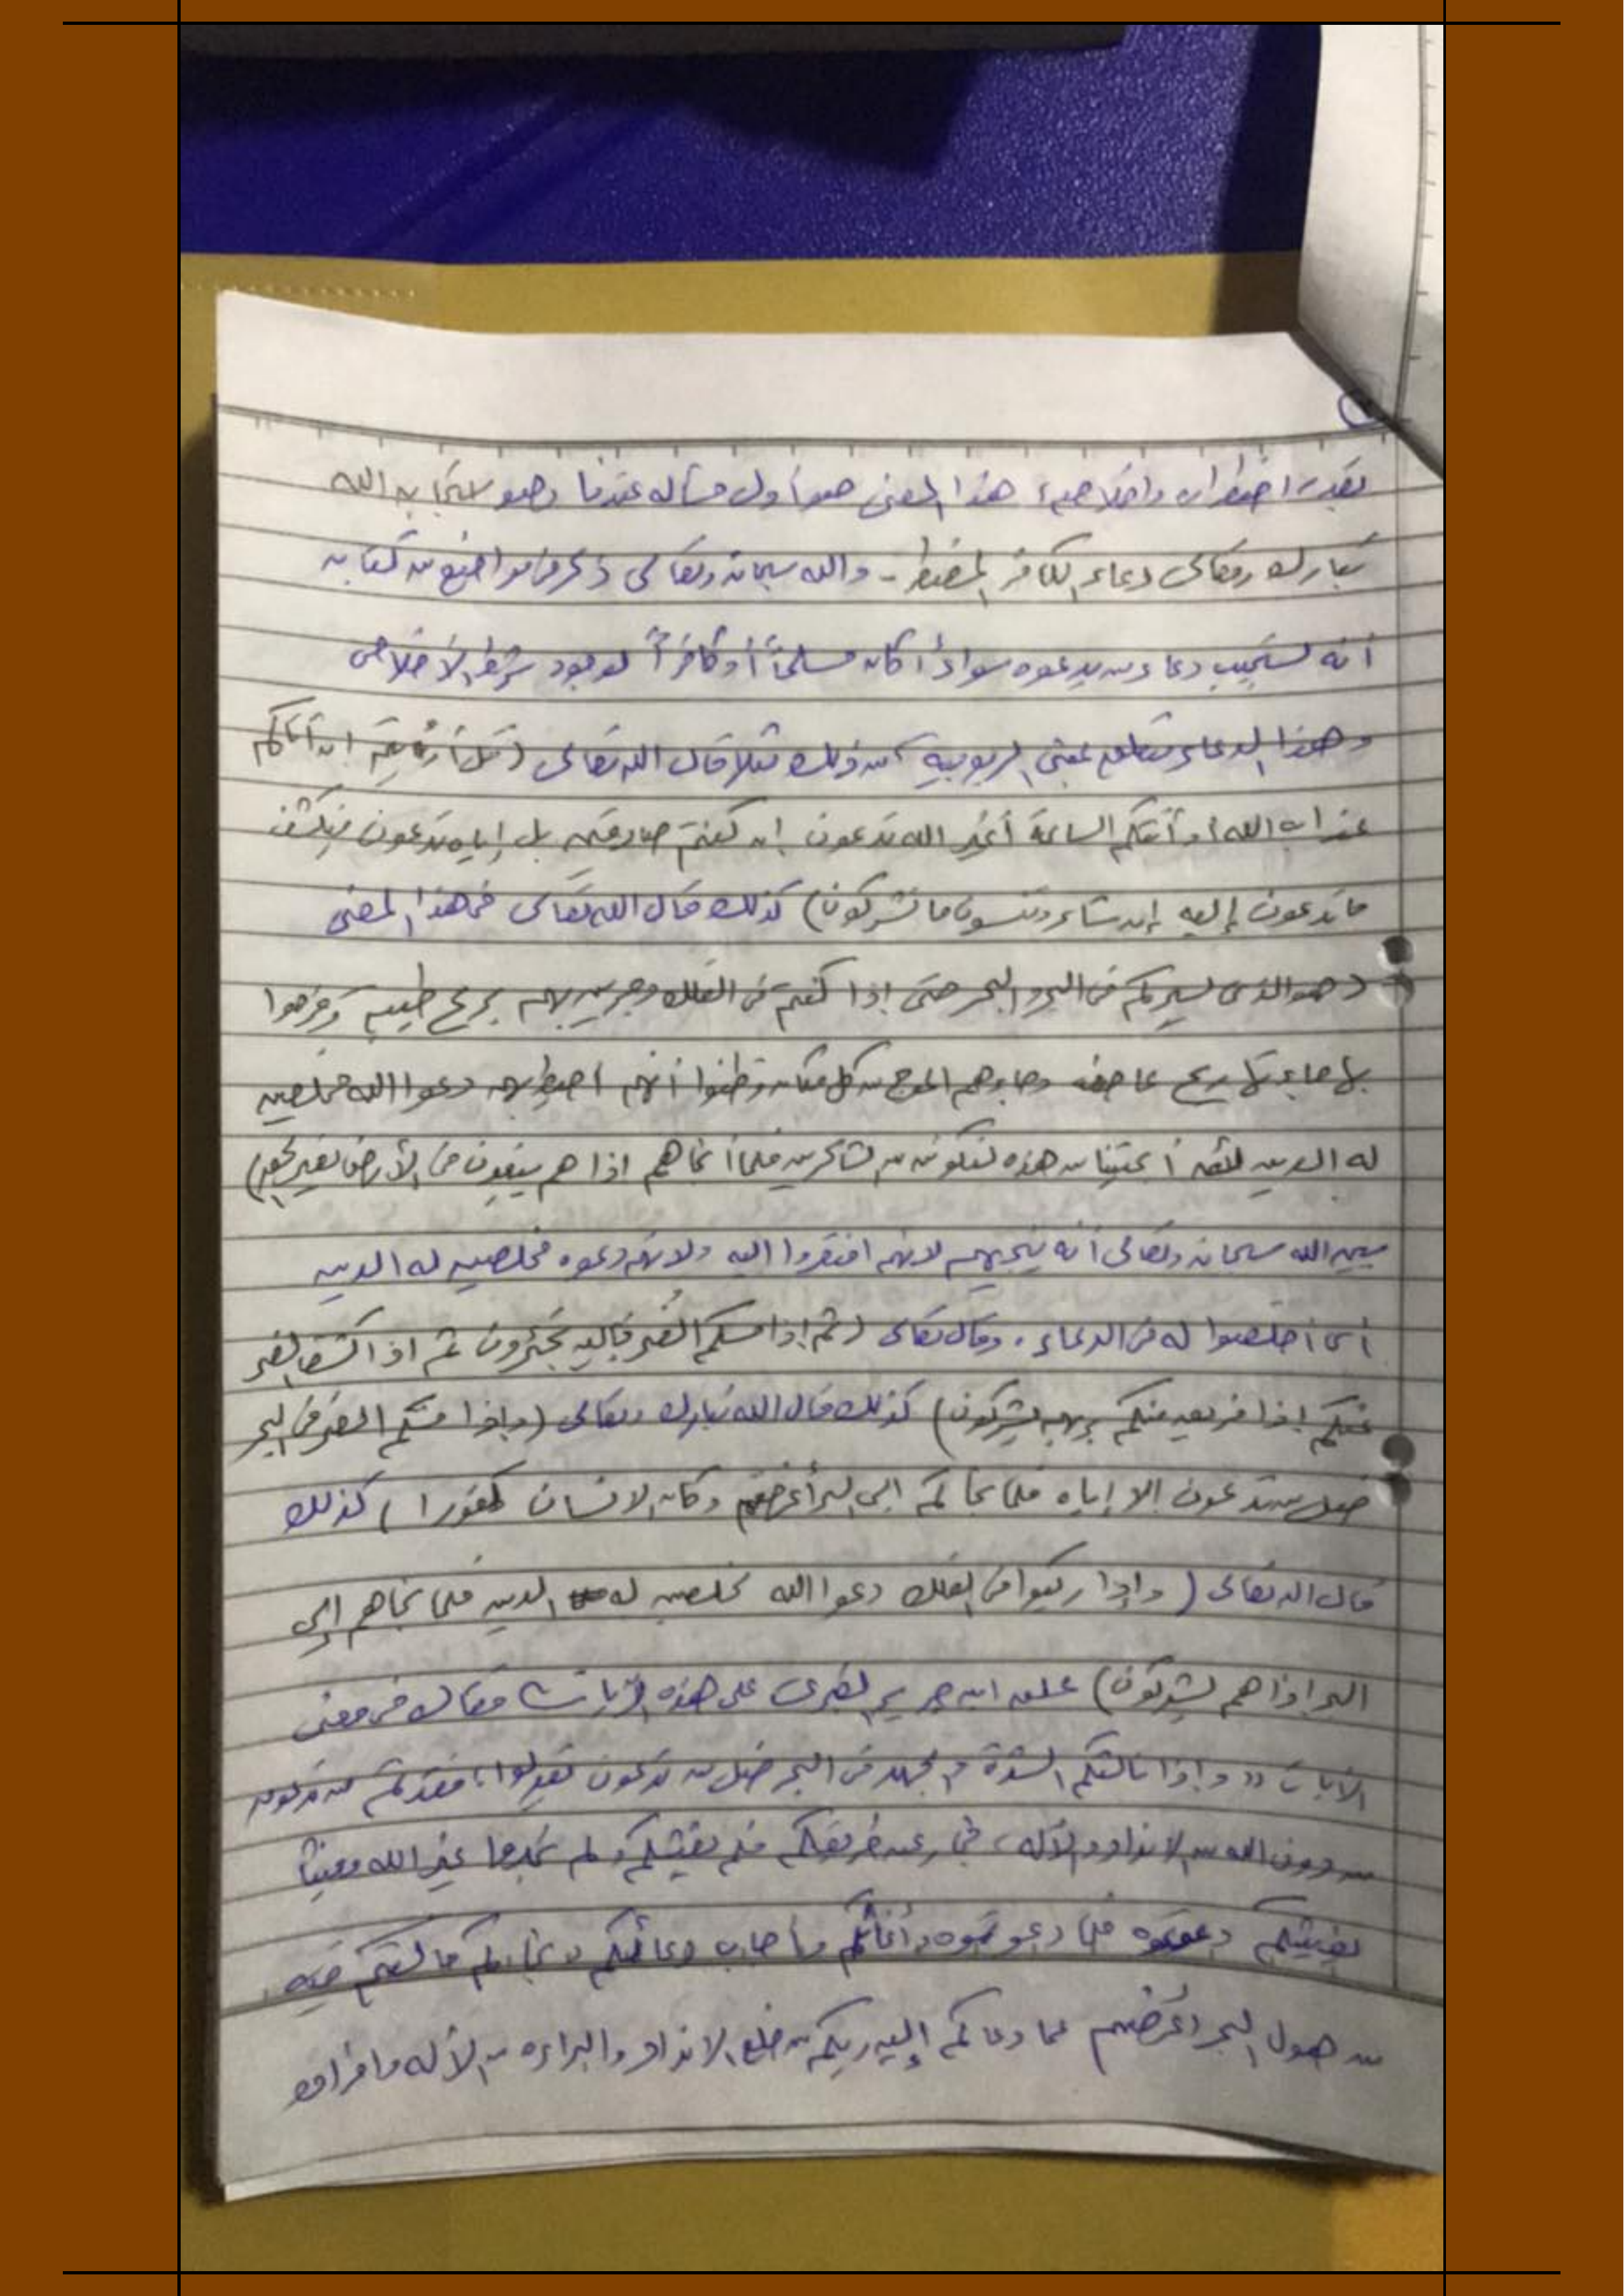 بقدر اضطراره واخلاصه، هذا المعنى هو أول مسأله عندنا وهو استجابه الله
تبارك وتعالى دعاء الكافر المضطر - والله سبحانه وتعالى ذكر فى مواضع من كتابه
أنه يستجيب دعاء من يدعوه سواءً أكان مسلماً أو كافراً لوجود شرط الاخلاص
وهذا الدعاء متعلق بمعنى الربوبيه من ذلك مثلا قال الله تعالى (قل أرءيتم ان أتاكم
عذاب الله أو أتتكم الساعة أغير الله تدعون إن كنتم صادقين بل إياه تدعون فيكشف
ما تدعون إليه إن شاء وتنسون ما تشركون) كذلك قال الله تعالى فى هذا المعنى
(هو الذى يسيركم فى البر و البحر حتى إذا كنتم فى الفلك وجرين بهم بريح طيبه وفرحوا
بها جاءتها ريح عاصف وجاءهم الموج من كل مكان وظنوا أنهم احيط بهم دعوا الله مخلصين
له الدين لئن أنجيتنا من هذه لنكونن من الشاكرين فلما أنجاهم اذا هم يبغون فى الأرض بغير الحق)
يبين الله سبحانه وتعالى أنه ينجيهم لانهم افتقروا اليه ولانهم دعوه مخلصين له الدين
أى أخلصوا له فى الدعاء . وقال تعالى (ثم إذا مسكم الضر فإليه تجئرون ثم اذا كشف الضر
عنكم إذا فريق منكم بربهم يشركون) كذلك قال الله تبارك وتعالى (وإذا مسكم الضر فى البحر
ضل من تدعون إلا إياه فلما نجاكم الى البر أعرضتم وكان الانسان كفورا) كذلك
قال الله تعالى (وإذا ركبوا فى الفلك دعوا الله مخلصين له الدين فلما نجاهم إلى
البر اذا هم يشركون) علق ابن جرير الطبرى على هذه الآيات فقال فى معنى
الآيات "وإذا نالتكم الشدة و الجهد فى البحر ضل من تدعون فقدتم من تدعون
من دون الله من الانداد والآله، عن طريقكم فلم يغيثكم ولم تجدوا غير الله مغيثاً
يغيثكم دعوتموه فلما دعوتموه وأغاثكم وأجاب دعائكم ونجاكم مما كنتم فيه
من هول البحر اعرضتم عما دعاكم إليه ربكم من خلع الانداد والبراءه من الآله وافراده